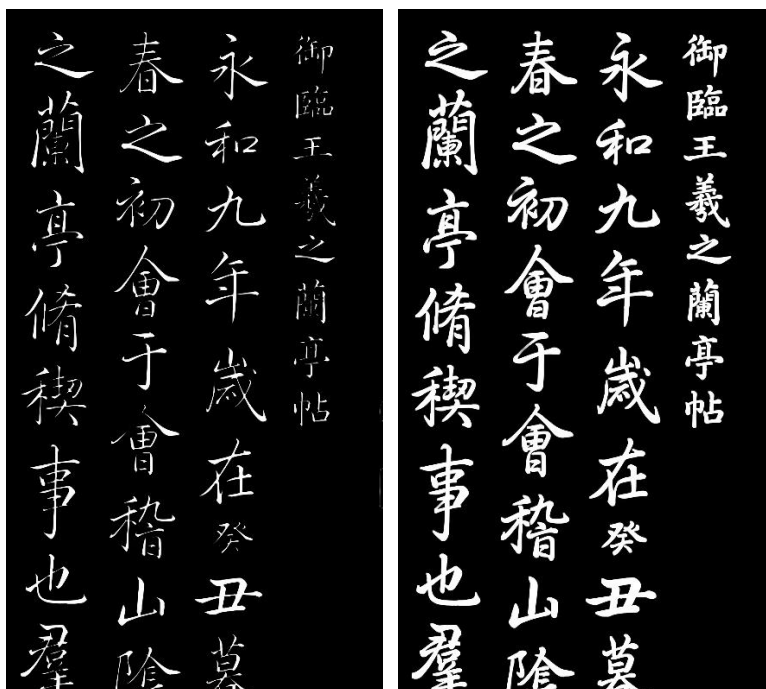 御臨王羲之蘭亭帖
永和九年歲在癸丑暮
春之初會于會稽山陰
之蘭亭脩稧事也羣
御臨王羲之蘭亭帖
永和九年歲在癸丑暮
春之初會于會稽山陰
之蘭亭脩稧事也羣